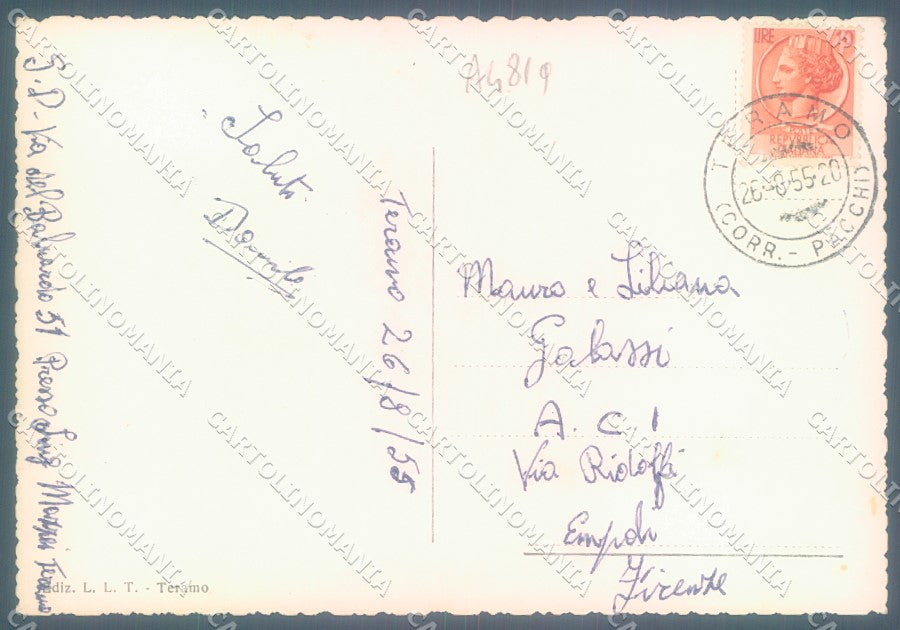 A4819
LIRE 10
REPVBBLICA
ITALIANA
TERAMO
26-8-55-20
(CORR. - PACCHI)
Saluti
Danilo
Teramo 26/8/55
Mauro e Liliana
Galassi
A. C I
Via Ridolfi
Empoli
Firenze
S. D - Via del Baluardo 51 Presso Sig Teramo
Ediz. L. L. T. - Teramo
CARTOLINOMANIA